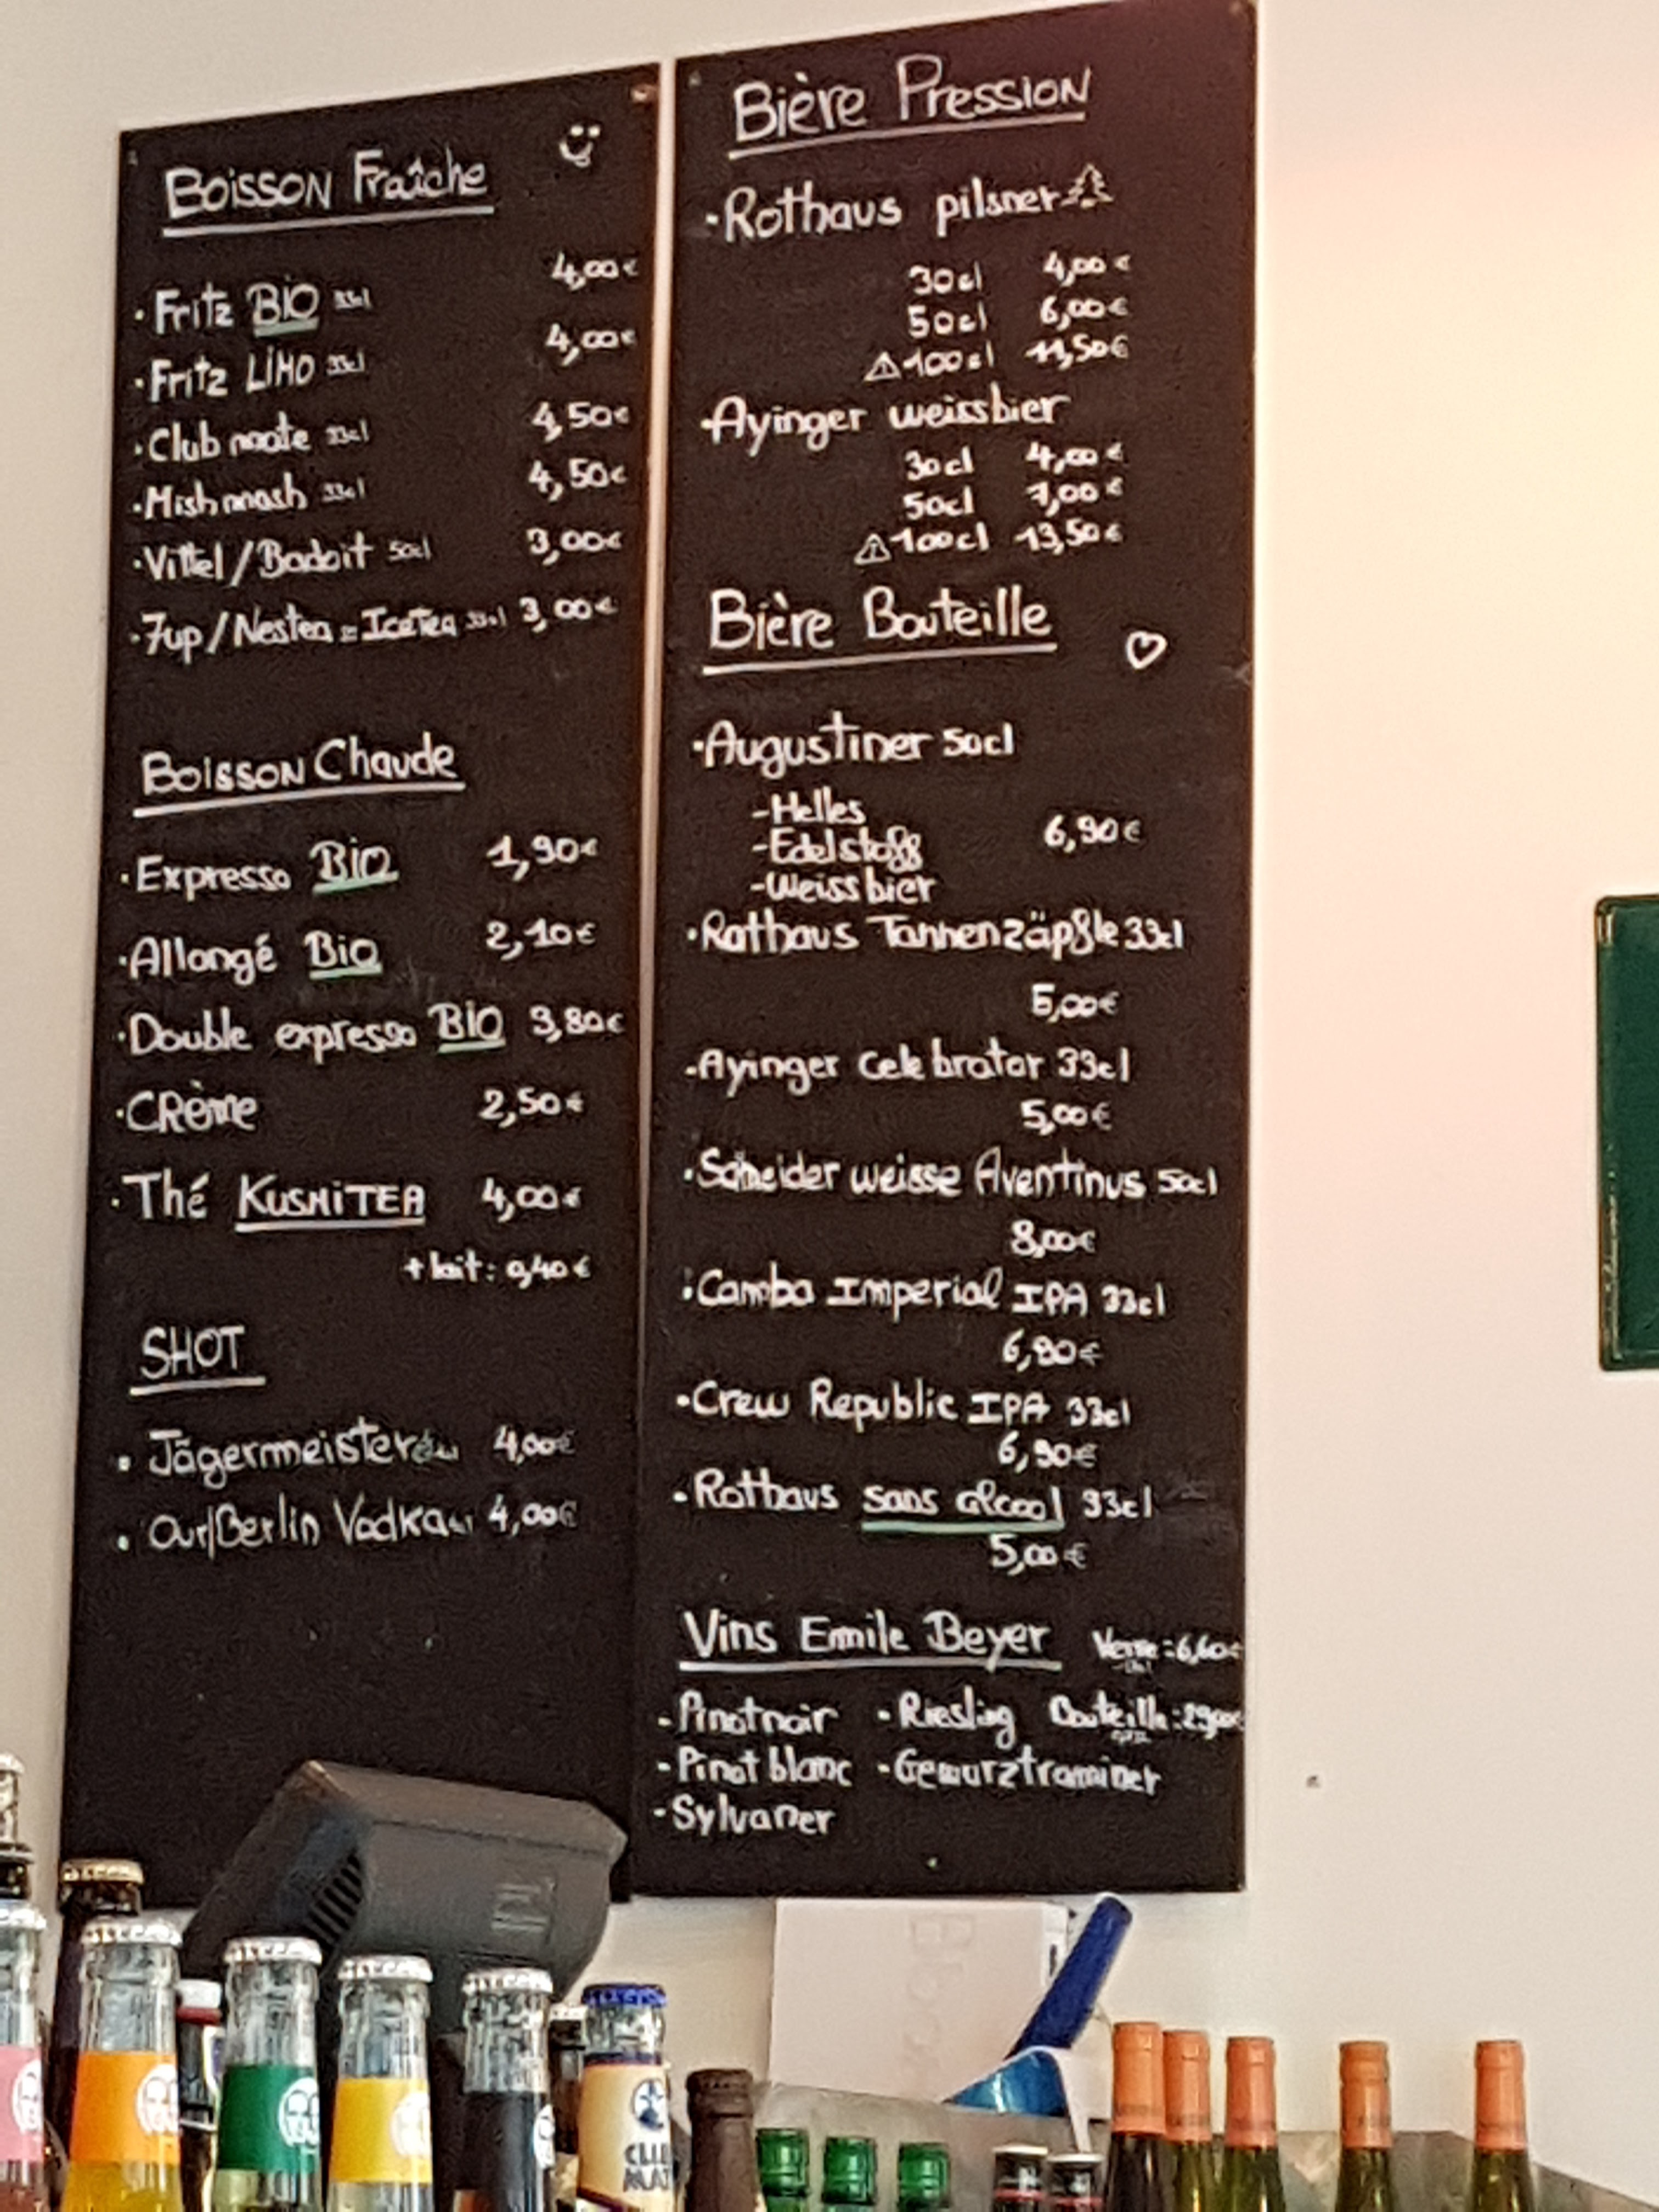 Boisson Fraîche
· Fritz BIO 33cl 4,00€
· Fritz LiMO 33cl 4,00€
· Club mate 33cl 4,50€
· Mish mash 33cl 4,50€
· Vittel/Badoit 50cl 3,00€
· 7up/Nestea IceTea 33cl 3,00€
Boisson Chaude
· Expresso Bio 1,90€
· Allongé Bio 2,10€
· Double expresso BIO 3,80€
· CRème 2,50€
· Thé KUSMiTEA 4,00€
+ lait: 0,40€
SHOT
· Jägermeister 4,00€
· Our/Berlin Vodka 4,00€
Bière Pression
· Rothaus pilsner
30cl 4,00€
50cl 6,00€
⚠100cl 11,50€
· Ayinger weissbier
30cl 4,00€
50cl 7,00€
⚠100cl 13,50€
Bière Bouteille
· Augustiner 50cl
- Helles
- Edelstoff 6,90€
- Weissbier
· Rothaus Tannenzäpfle 33cl
5,00€
· Ayinger Celebrator 33cl
5,00€
· Scheider weisse Aventinus 50cl
8,00€
· Camba Imperial IPA 33cl
6,90€
· Crew Republic IPA 33cl
6,90€
· Rothaus sans alcool 33cl
5,00€
Vins Emile Beyer Verre: 6,60€
- Pinot noir - Riesling Bouteille: 29,00€
- Pinot blanc - Gewurztraminer
- Sylvaner
CLUB
MAT